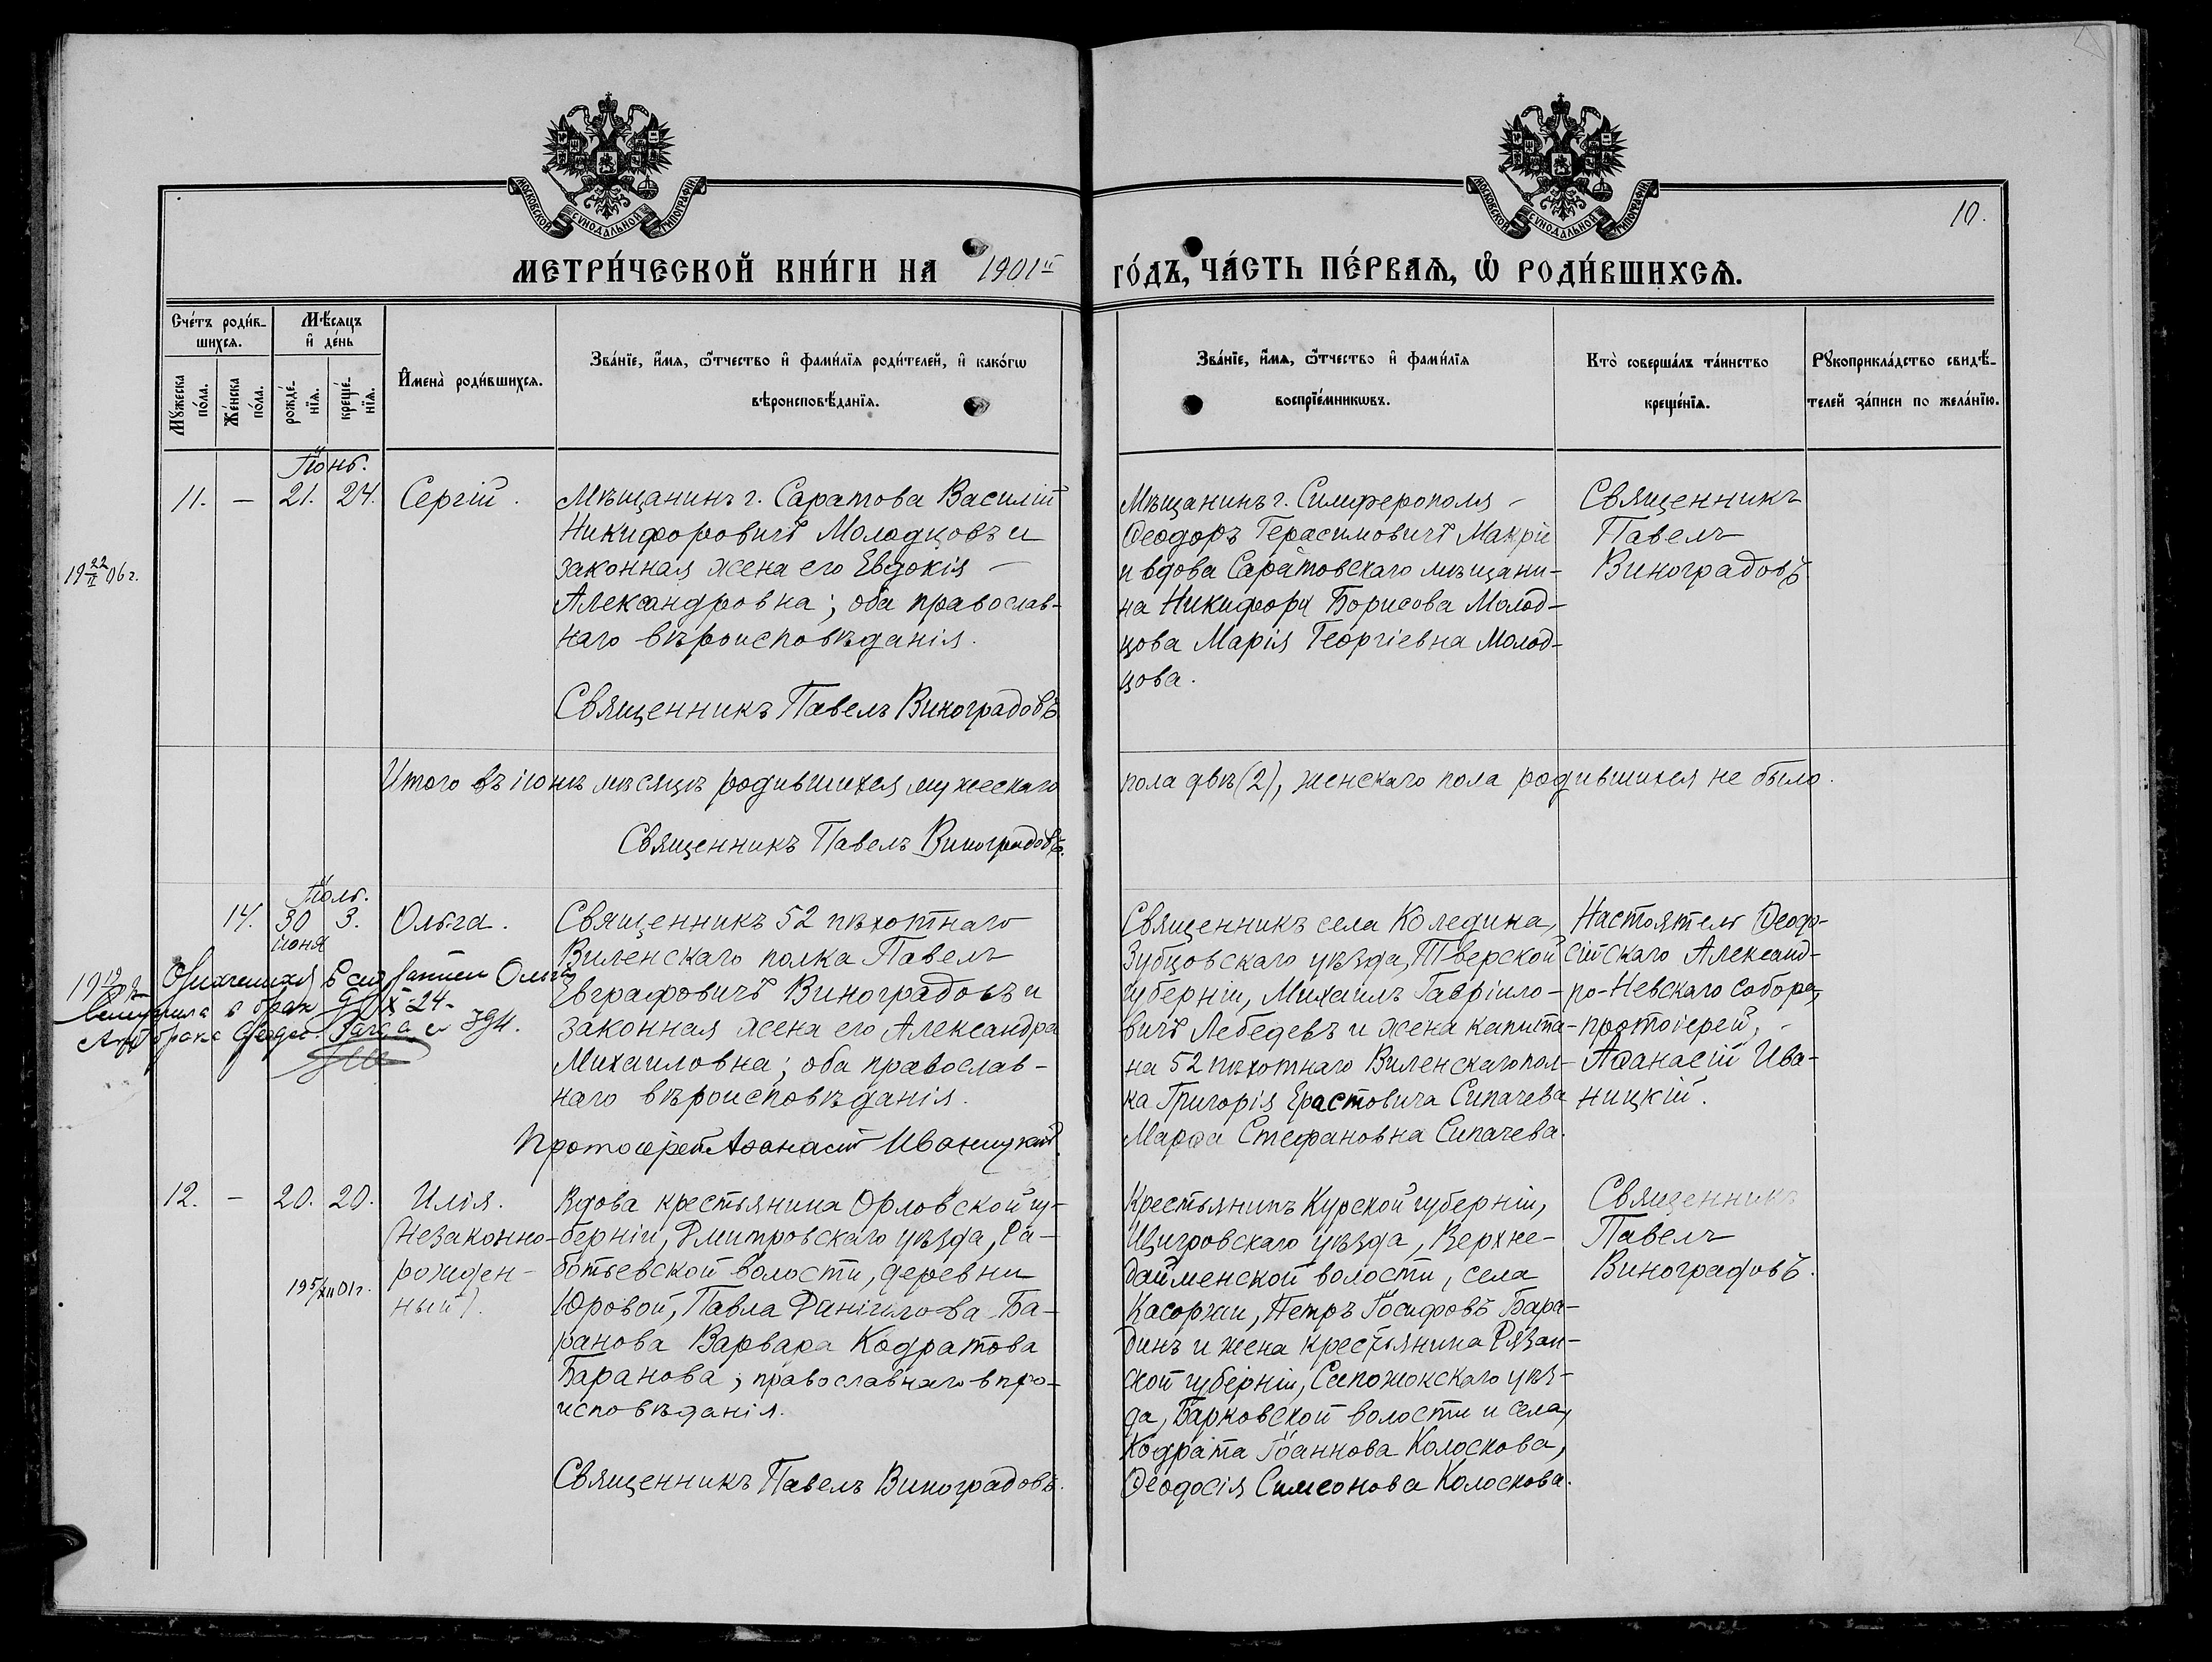 МОСКОВСКОЙ СѴНОДАЛЬНОЙ ТИПОГРАФІИ
МОСКОВСКОЙ СѴНОДАЛЬНОЙ ТИПОГРАФІИ
10.
МЕТРИ́ЧЕСКОЙ КНИ́ГИ НА 1901й ГО́ДЪ, ЧА́СТЬ ПЕ́РВАѦ, Ѡ РОДИ́ВШИХСѦ.
Сче́тъ роди́в-
шихсѧ.
Мѣ́сѧцъ
и҆ де́нь
Мꙋ́жеска
по́ла.
Же́нска
по́ла.
рожде́-
нїѧ.
креще́-
нїѧ.
И҆мена̀ роди́вшихсѧ.
Зва́нїе, и҆́мѧ, ѻ҆́тчество и҆ фами́лїѧ роди́телей, и҆ како́гѡ
вѣроисповѣ́данїѧ.
Зва́нїе, и҆́мѧ, ѻ҆́тчество и҆ фами́лїѧ
воспрїе́мникѡвъ.
Кто̀ соверша́лъ та́инство
креще́нїѧ.
Рꙋкоприкла́дство свидѣ́-
телей за́писи по жела́нїю.
Іюнь.
11. — 21. 24. Сергій.
19 22/II 06 г.
Мѣщанинъ г. Саратова Василій
Никифоровичъ Молодцовъ и
законная жена его Евдокія —
Александровна; оба православ-
наго вѣроисповѣданія.
Священникъ Павелъ Виноградовъ
Мѣщанинъ г. Симферополя —
Ѳеодоръ Герасимовичъ Макри
и вдова Саратовскаго мѣщани-
на Никифора Борисова Молод-
цова Марія Георгіевна Молод-
цова.
Священникъ
Павелъ
Виноградовъ
Итого въ іюнѣ мѣсяцѣ родившихся мужескаго пола двѣ (2), женскаго пола родившихся не было.
Священникъ Павелъ Виноградовъ.
Іюль.
14. 30 3. Ольга.
іюня
Священникъ 52 пѣхотнаго
Виленскаго полка Павелъ
Евграфовичъ Виноградовъ и
законная жена его Александра
Михаиловна; оба православ-
наго вѣроисповѣданія.
Протоіерей Аѳанасій Иваницкій.
Означенная в сей записи Ольга
в брак
X-24
Священникъ села Коледина,
Зубцовскаго уѣзда, Тверской
губерніи, Михаилъ Гавріило-
вичъ Лебедевъ и жена капита-
на 52 пѣхотнаго Виленскаго пол-
ка Григорія Ерастовича Сипачева
Марѳа Стефановна Сипачева.
Настоятель Ѳеодо-
сійскаго Александ-
ро-Невскаго собора,
протоіерей, —
Аѳанасій Ива-
ницкій.
12. — 20. 20. Илія.
(Незаконно-
рожден-
ный).
19 5/XII 01 г.
Вдова крестьянина Орловской гу-
берніи, Дмитровскаго уѣзда, Ра-
ботьевской волости, деревни
Юровой, Павла Даніилова Ба-
ранова Варвара Кодратова
Баранова; православнаго вѣро-
исповѣданія.
Священникъ Павелъ Виноградовъ.
Крестьянинъ Курской губерніи,
Щигровскаго уѣзда, Верхне-
дайменской волости, села
Касоржи, Петръ Іосифовъ Бара-
динъ и жена крестьянина Рязан-
ской губерніи, Сапожокскаго уѣз-
да, Барковской волости и села,
Кодрата Іоаннова Колоскова,
Ѳеодосія Симеонова Колоскова.
Священникъ
Павелъ
Виноградовъ.